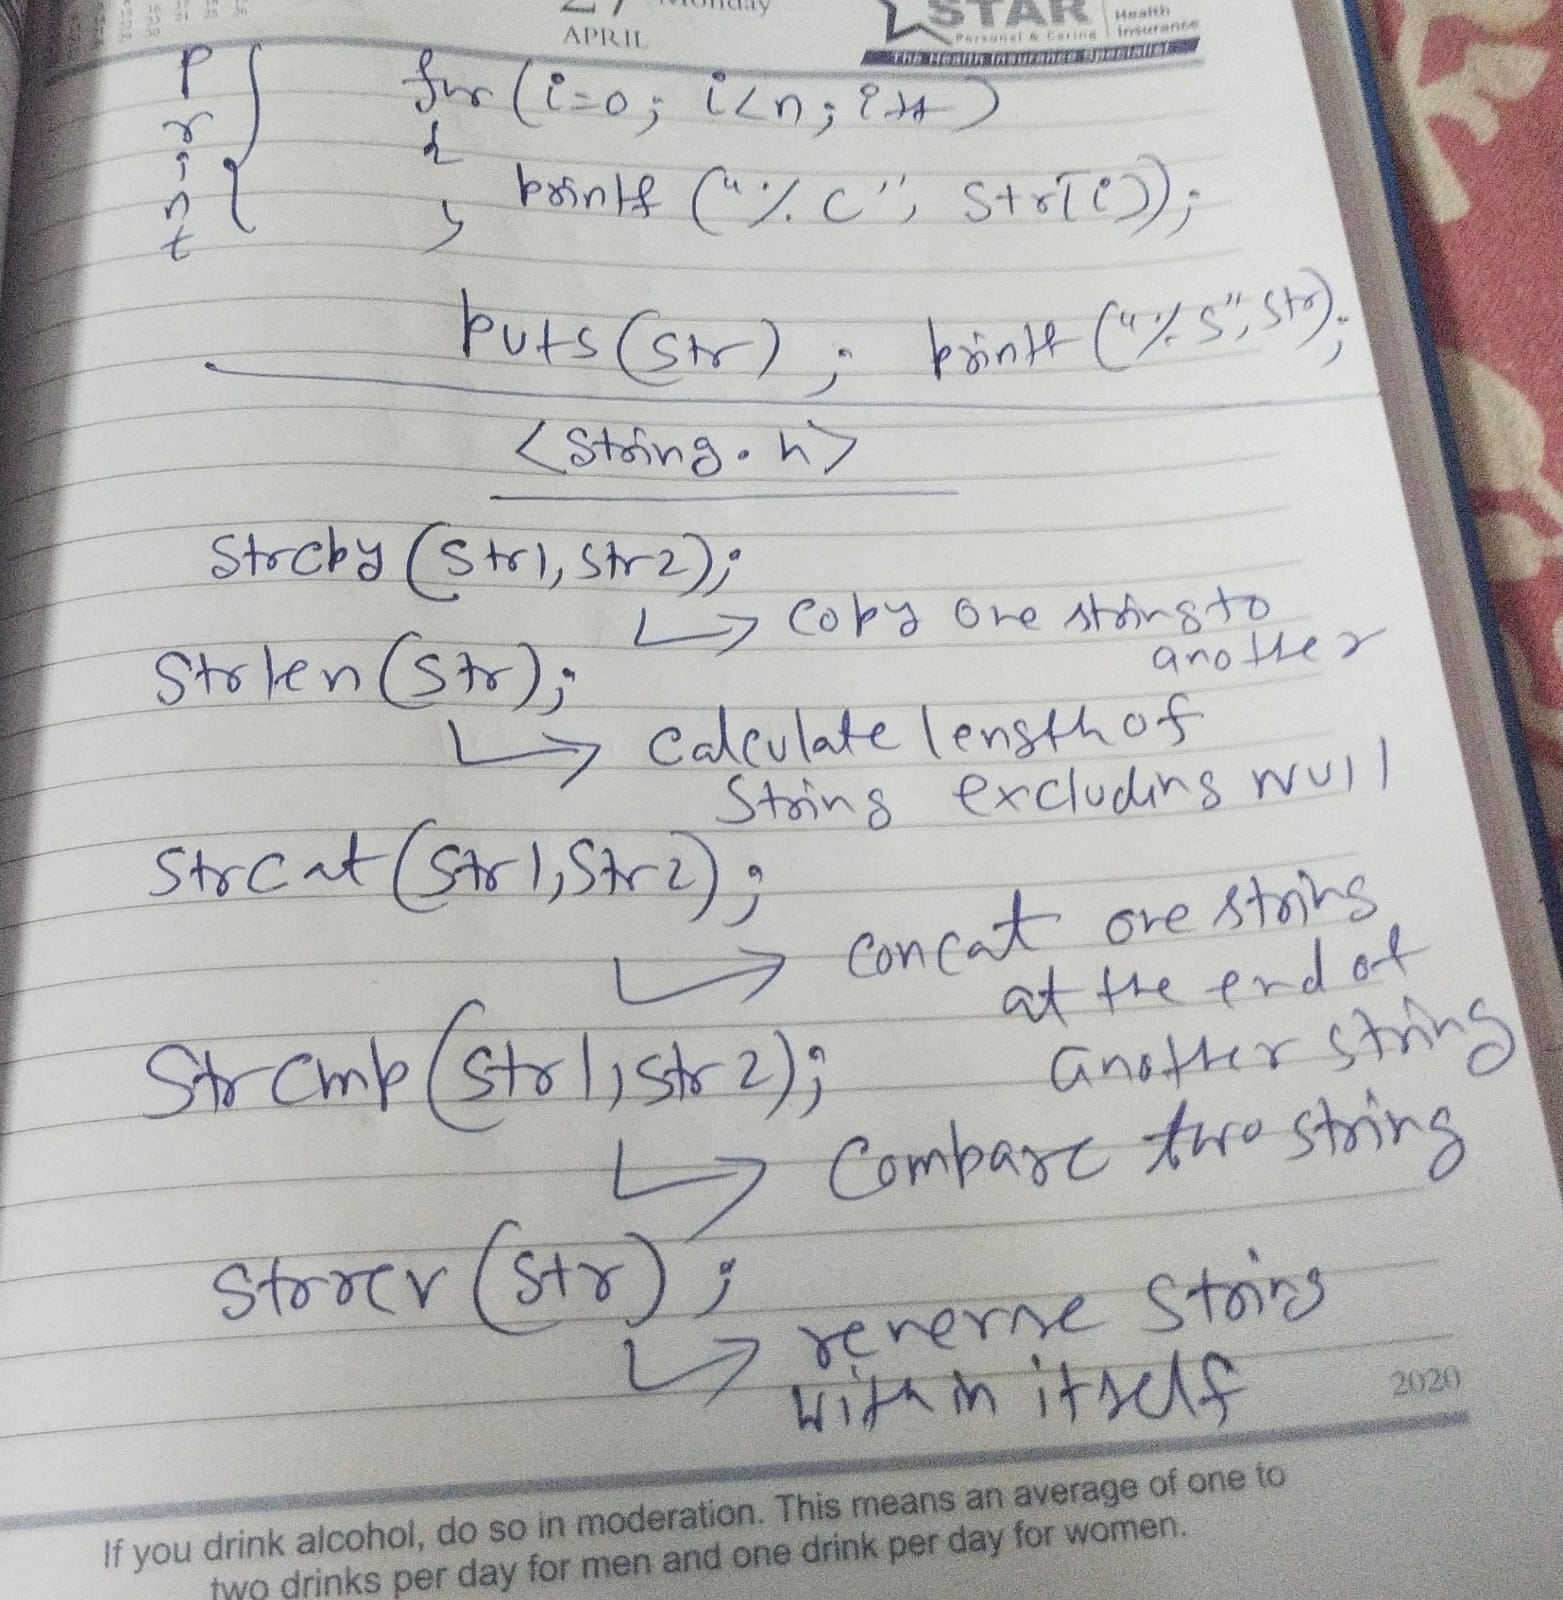 27 Monday
APRIL
STAR Health
Personal & Caring Insurance
The Health Insurance Specialist
Print
for(i=0; i<n; i++)
{
printf("%c", str[i]);
}
puts(str); printf("%s", str);
<string.h>
strcpy(str1, str2);
copy one string to
another
strlen(str);
calculate length of
string excluding NULL
strcat(str1, str2);
concat one string
at the end of
another string
strcmp(str1, str2);
compare two string
strrev(str);
reverse string
within itself
2020
If you drink alcohol, do so in moderation. This means an average of one to
two drinks per day for men and one drink per day for women.